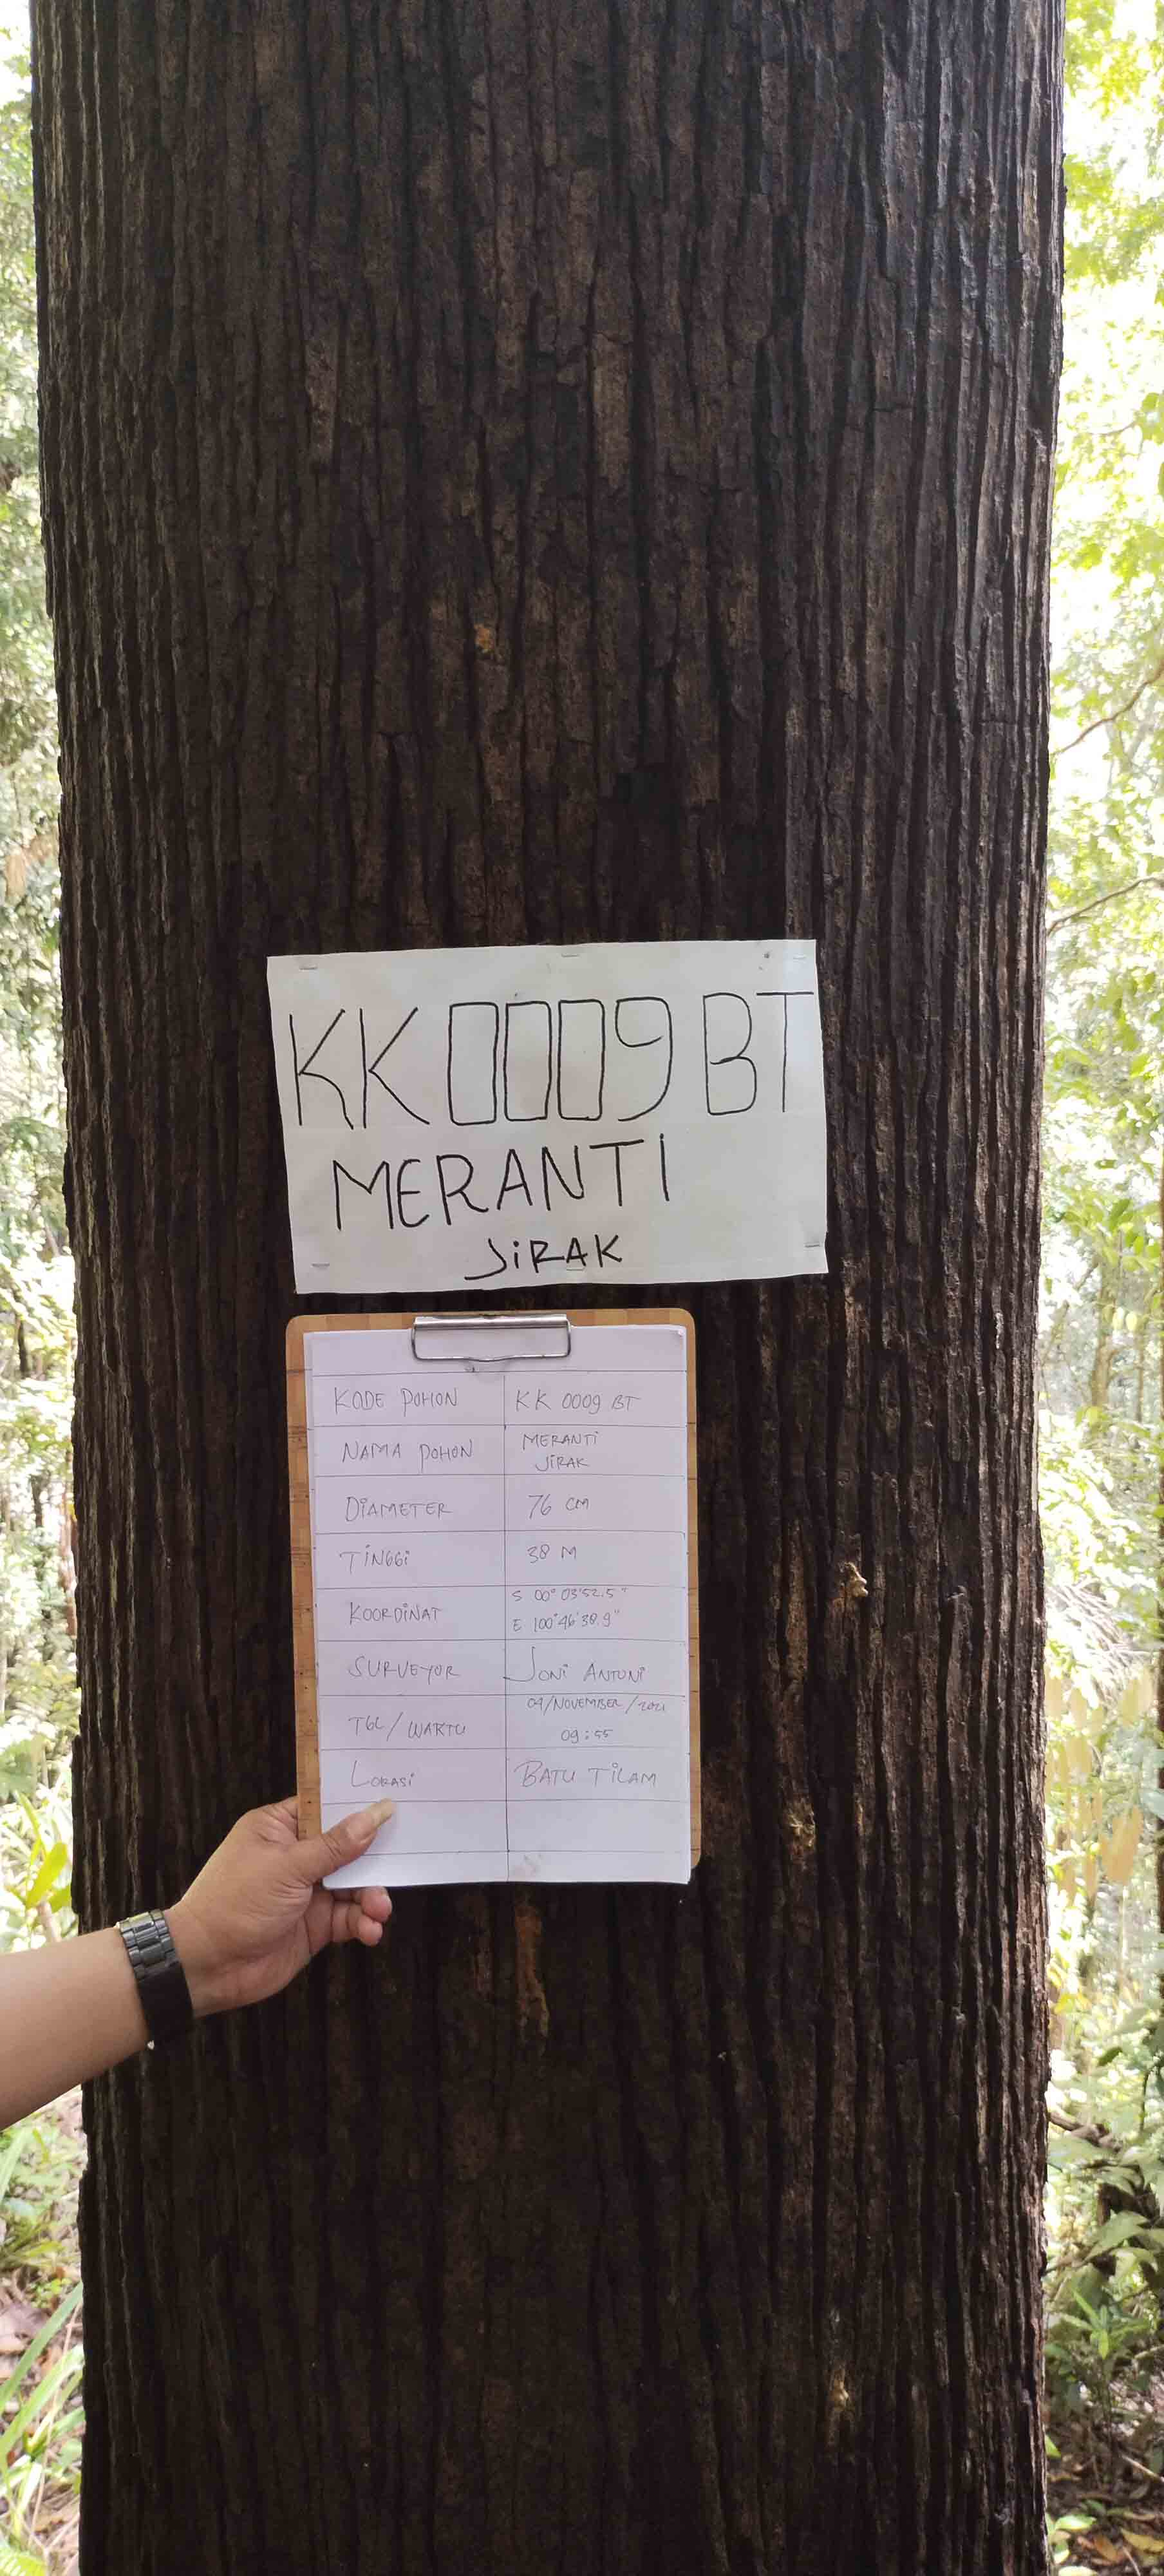 KK 0009 BT
MERANTI
JiRAK
KODE POHON KK 0009 BT
NAMA POHON MERANTi JiRAK
DiAMETER 76 CM
TiNGGi 38 M
KOORDiNAT S 00° 03' 52.5" E 100° 46' 38.9"
SURVEYOR JONi ANTONi
TGL/WAKTU /NOVEMBER/2021 09:55
LOKASi BATU TiLAM